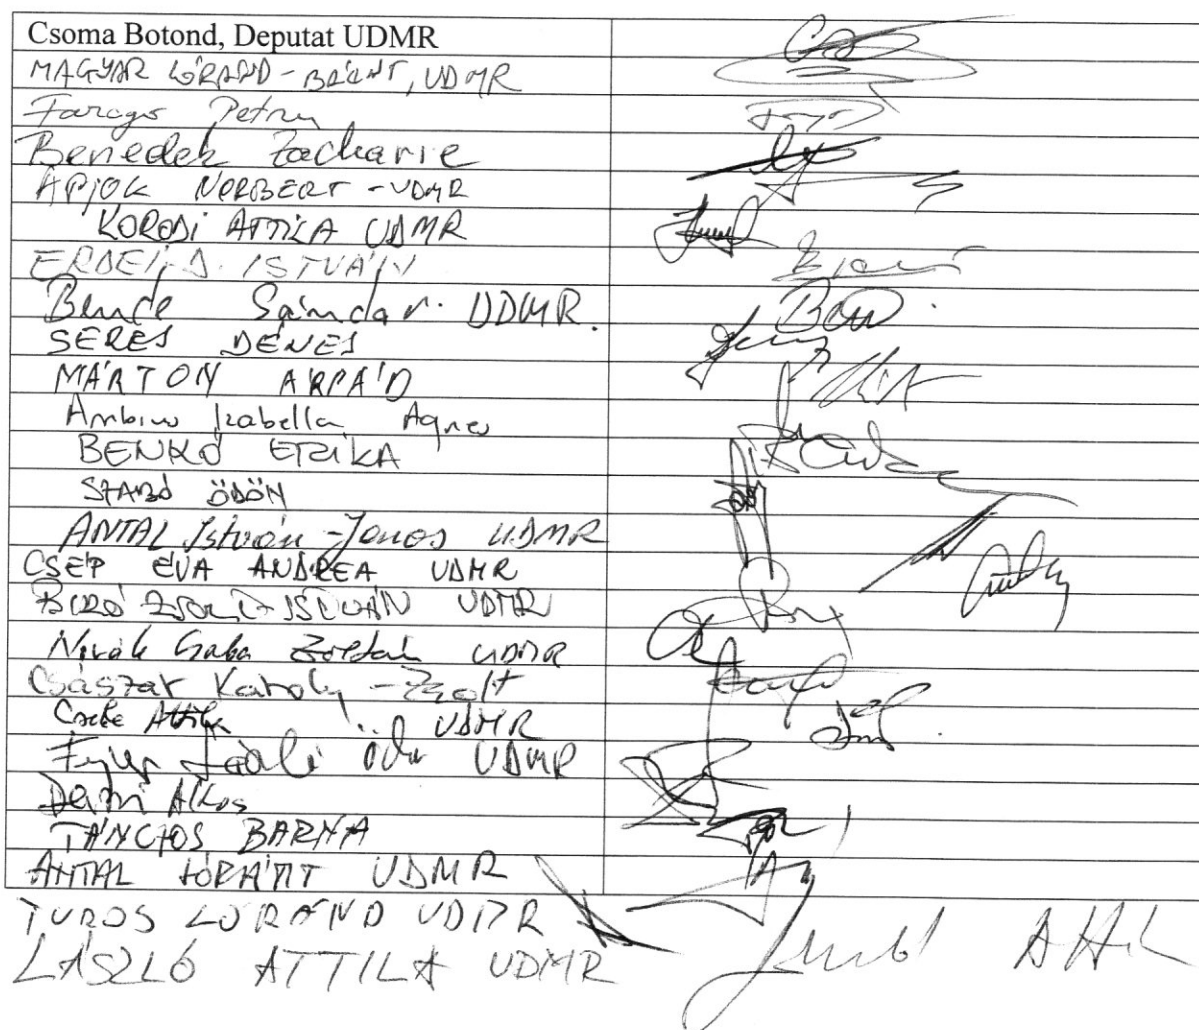 Csoma Botond, Deputat UDMR
MAGYAR LÓRÁND-BÁLINT, UDMR
Farago Petru
Benedek Zacharie
APJOK NORBERT - UDMR
KORODI ATTILA UDMR
ERDEI-D. ISTVÁN
Bende Sándor UDMR.
SERES DÉNES
MÁRTON ÁRPÁD
Ambrus Izabella Agnes
BENKŐ ERIKA
SZABÓ ÖDÖN
ANTAL István-János UDMR
CSÉP ÉVA ANDREA UDMR
BIRÓ ZSOLT-ISTVÁN UDMR
Zoltán UDMR
Császár Károly-Zsolt
Cseke Attila UDMR
Fejér László Ödön UDMR
Derzsi Ákos
TÁNCZOS BARNA
ANTAL LÓRÁNT UDMR
TUROS LÓRÁND UDMR
LÁSZLÓ ATTILA UDMR